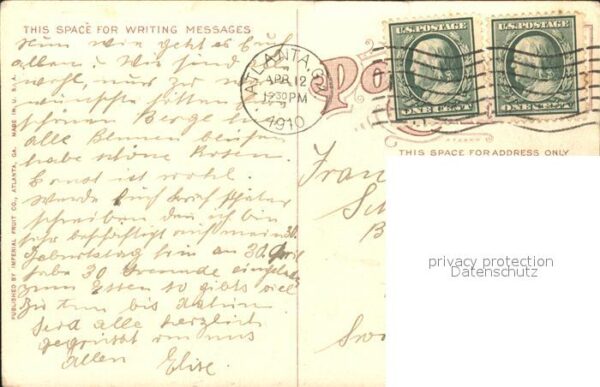 THIS SPACE FOR WRITING MESSAGES
Nun wie geht es Euch
allen? Wir sind
wohl, nur
wünschte hätten
schönen Berge
alle Blumen
habe schöne Rosen.
Ernst ist wohl.
Werde Euch später
schreiben den ich bin
sehr beschäftigt auf mein 30.
Geburtstag hin am 30. April
habe 30 Freunde
zum Essen so gibts viel
zu tun bis dahin.
Seid alle herzlich
gegrüsst von uns
allen Elise.
PUBLISHED BY IMPERIAL FRUIT CO., ATLANTA, GA. MADE IN U. S. A.
ATLANTA, G
APR 12
12 30 PM
1910
Po
U.S. POSTAGE
ONE CENT
U.S. POSTAGE
ONE CENT
THIS SPACE FOR ADDRESS ONLY
Fran
privacy protection
Datenschutz